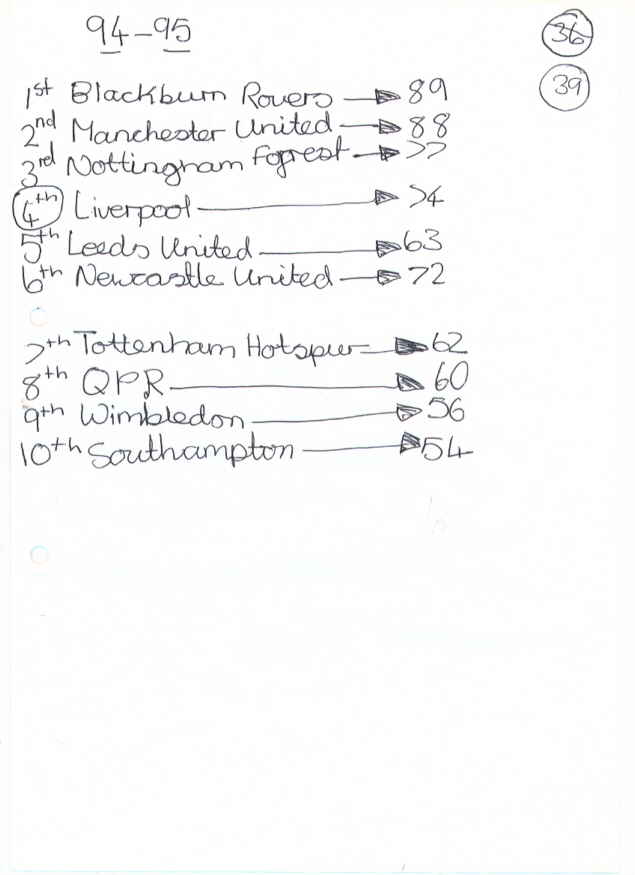 94-95
36
39
1st Blackburn Rovers 89
2nd Manchester United 88
3rd Nottingham Forrest 77
4th Liverpool 74
5th Leeds United 63
6th Newcastle United 72
7th Tottenham Hotspur 62
8th QPR 60
9th Wimbledon 56
10th Southampton 54